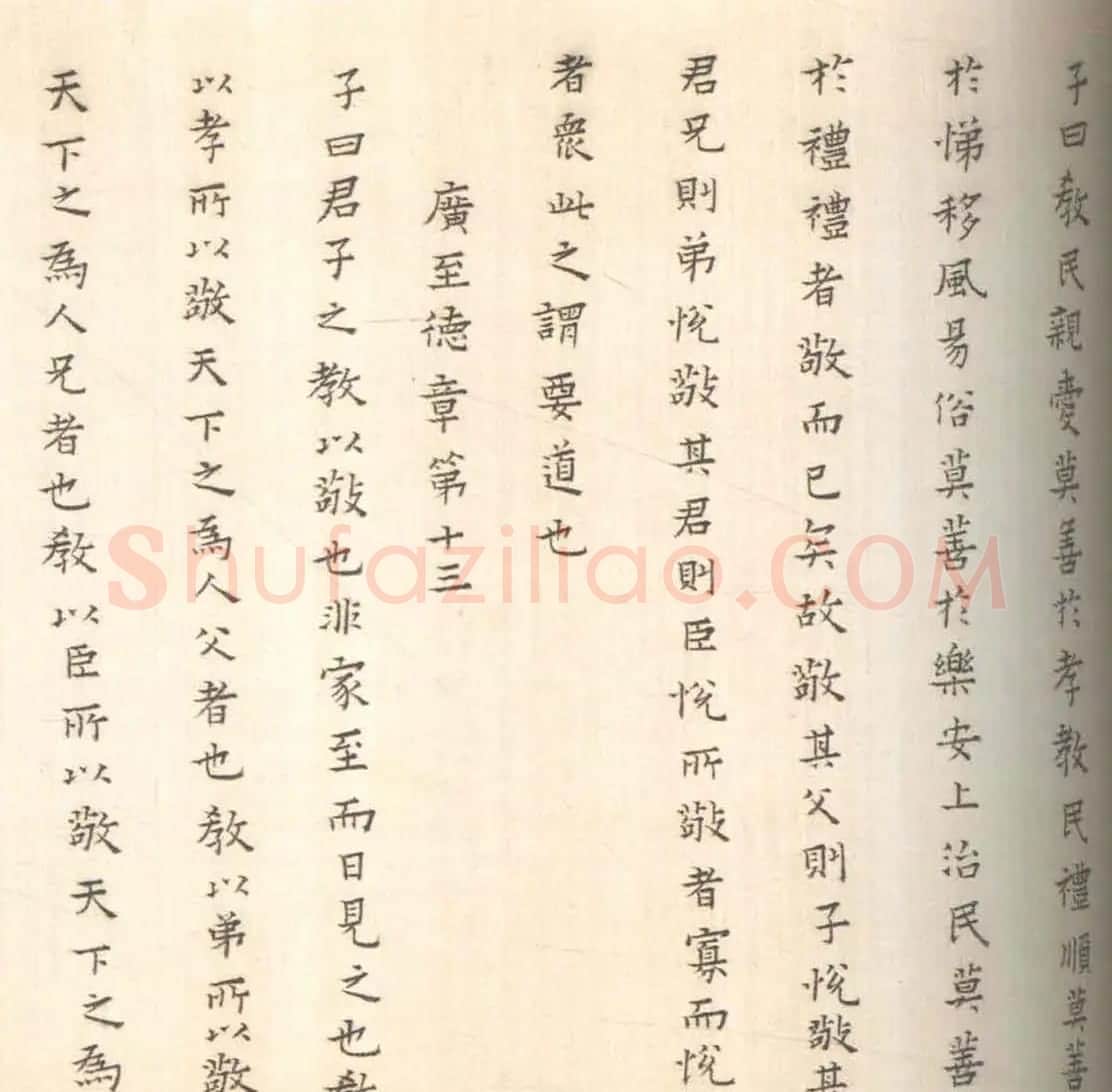 子曰教民親愛莫善於孝教民禮順莫善
於悌移風易俗莫善於樂安上治民莫善
於禮禮者敬而已矣故敬其父則子悅敬其
君兄則弟悅敬其君則臣悅所敬者寡而悅
者衆此之謂要道也
廣至德章第十三
子曰君子之教以敬也非家至而日見之也教
以孝所以敬天下之為人父者也教以弟所以敬
天下之為人兄者也教以臣所以敬天下之為
Shufaziliao.COM